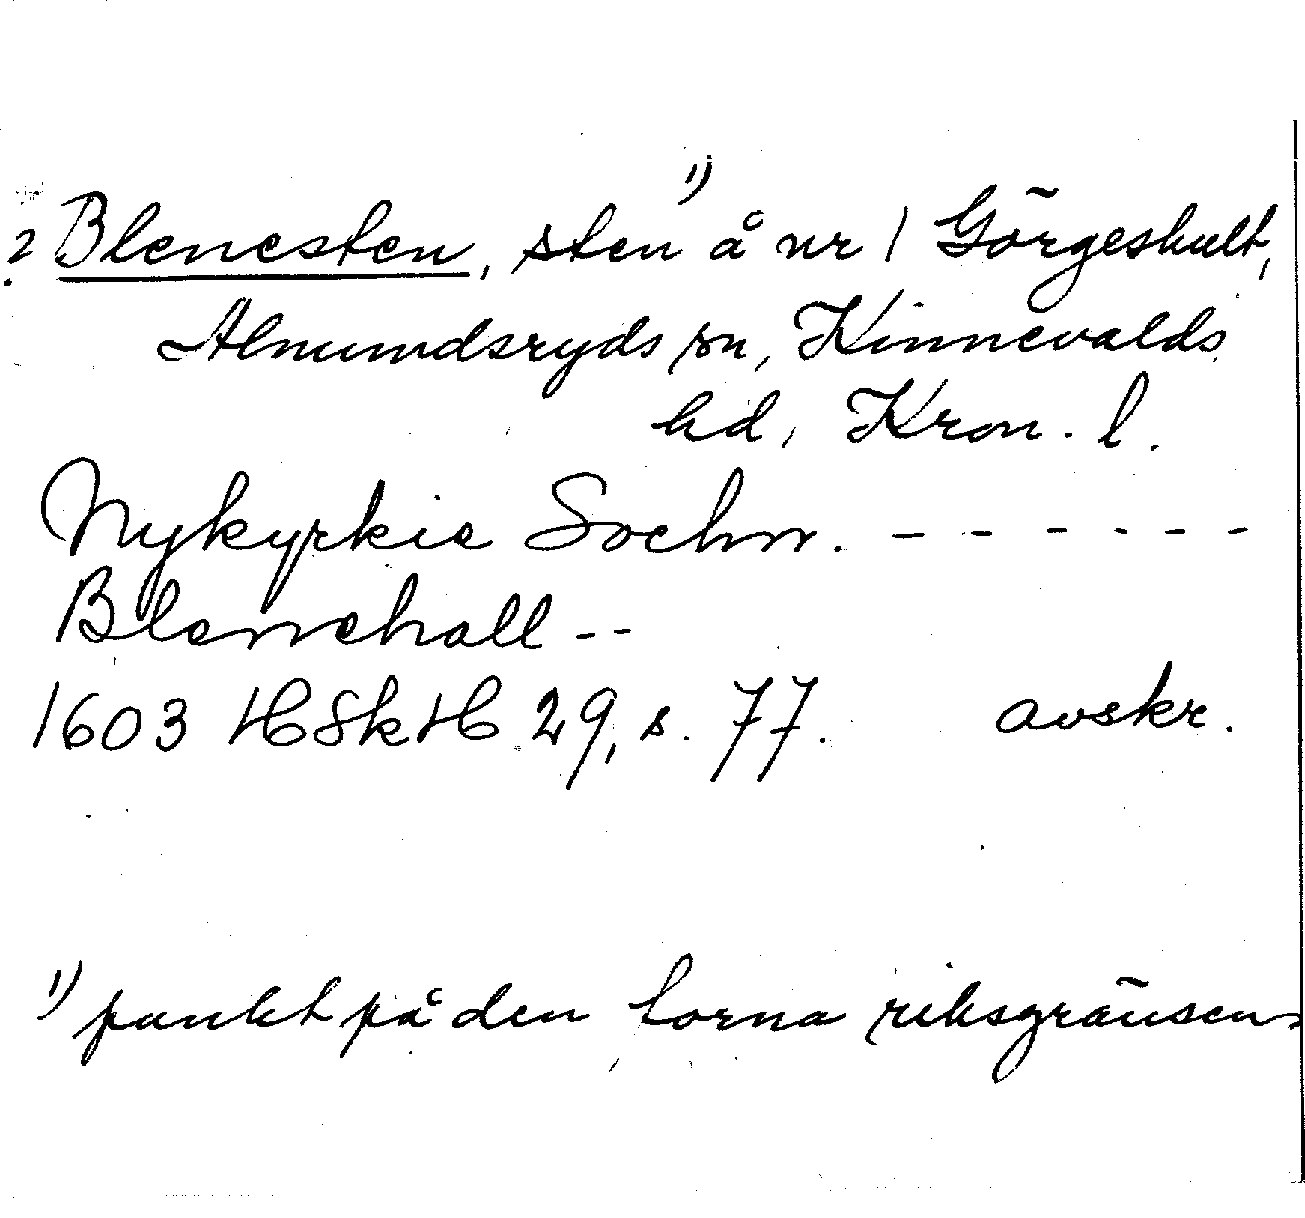 ? Blenesten, sten ¹⁾ å nr 1 Görgeshult,
Almundsryds sn, Kinnevalds
hd, Kron. l.
Nykyrkie Sochn. - - - - - -
Blenehall - -
1603 HSkH 29, s. 77. avskr.
¹⁾ punkt på den forna riksgränsen